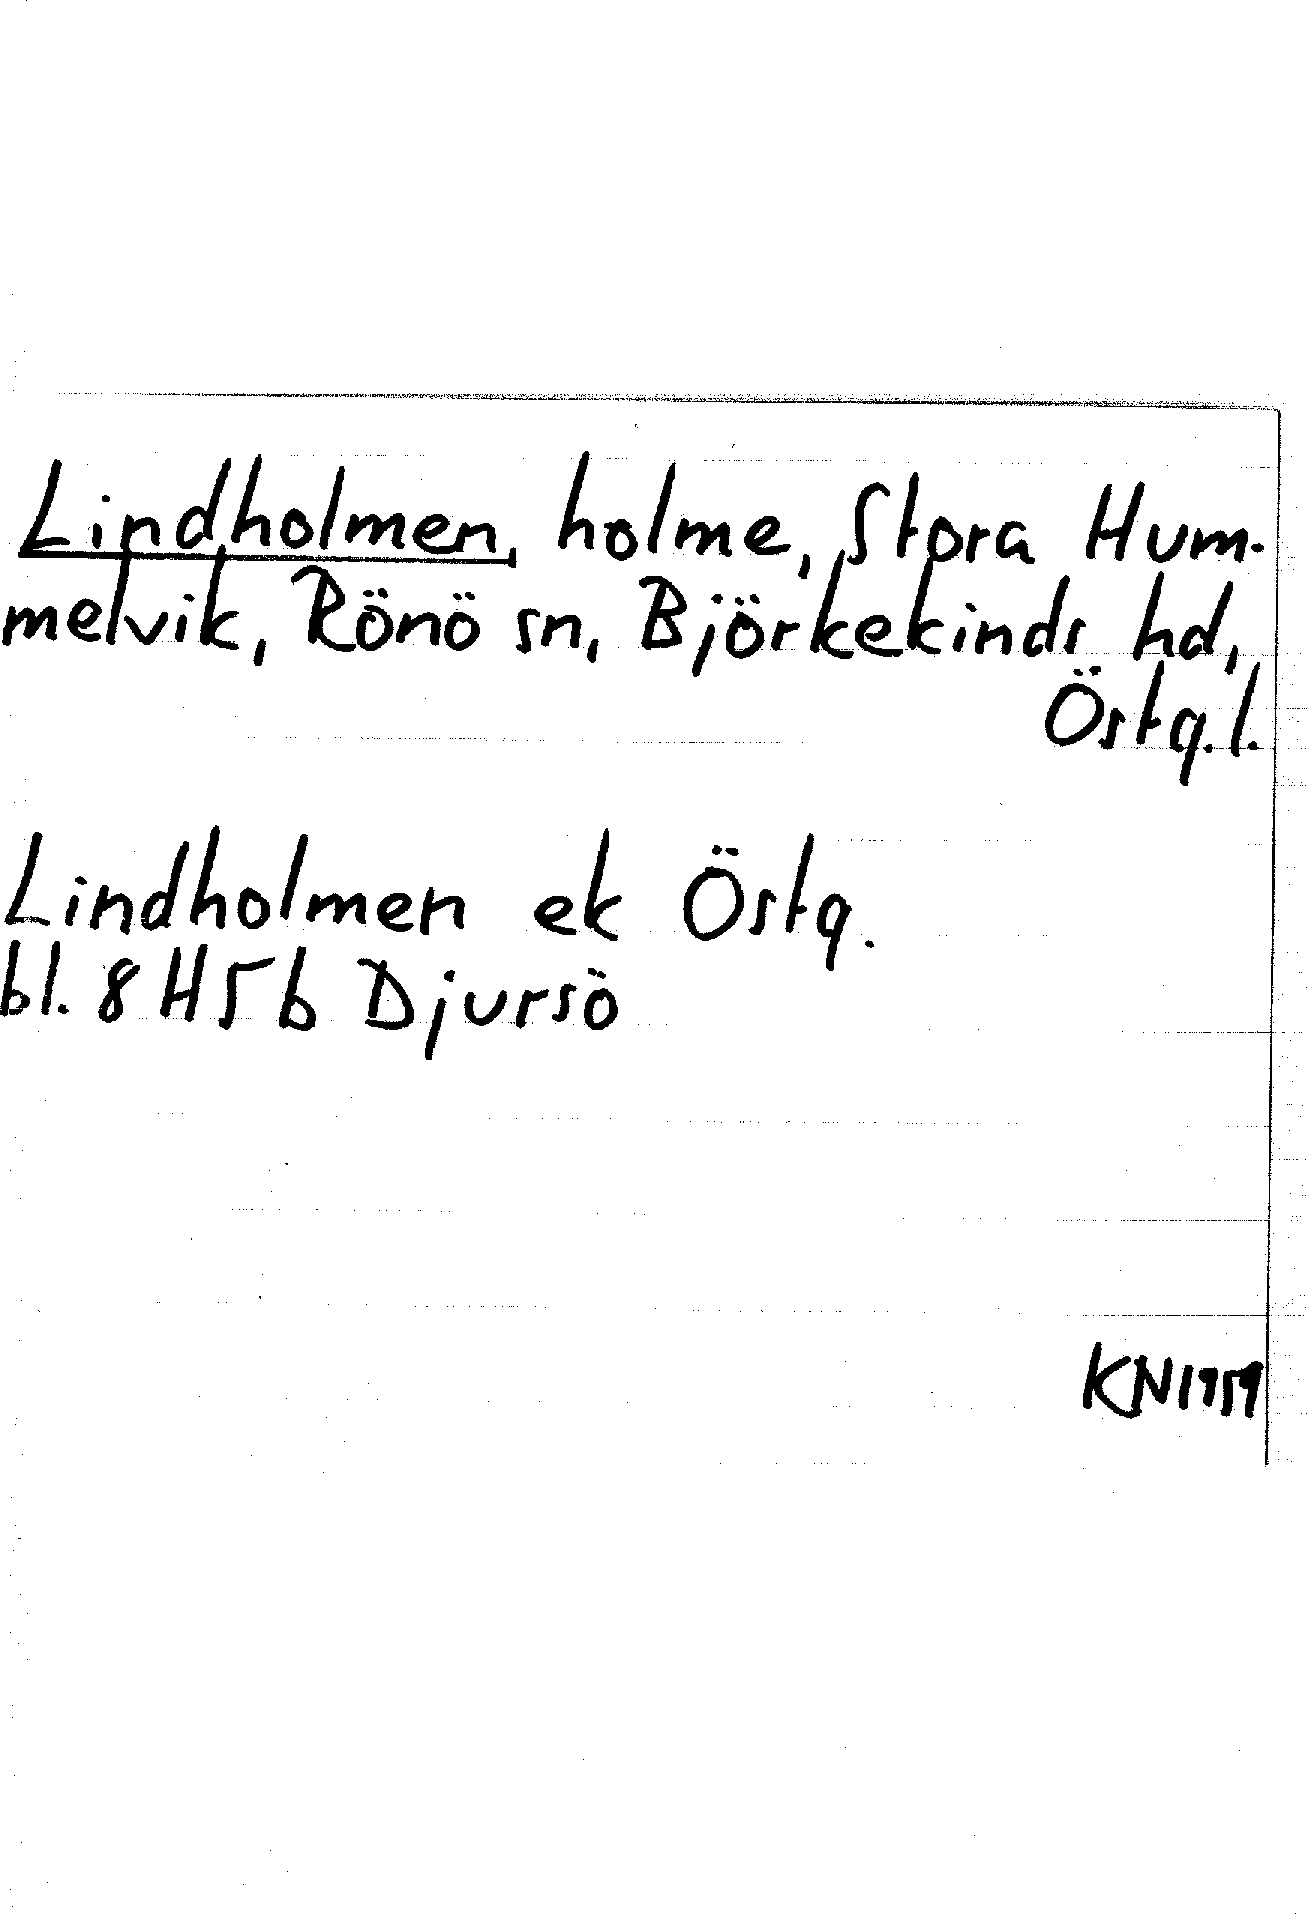 Lindholmen, holme, Stora Hum-
melvik, Rönö sn, Björkekinds hd,
Östg.l.
Lindholmen ek Östg.
bl. 8 H5b Djursö
KN1959